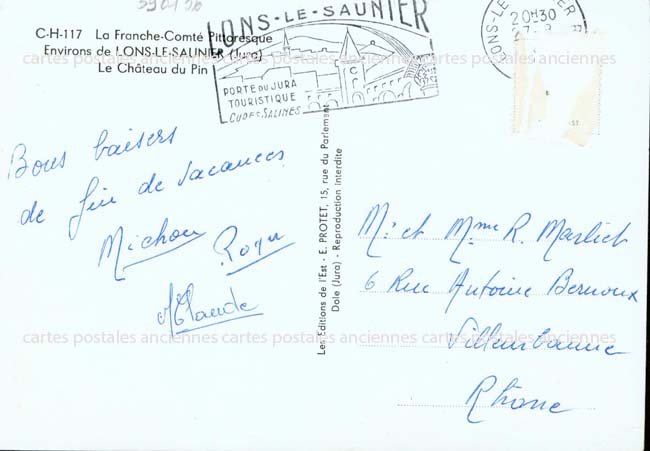 39 01 26
C-H-117 La Franche-Comté Pittoresque
Environs de LONS-LE-SAUNIER (Jura)
Le Château du Pin
LONS-LE-SAUNIER
PORTE DU JURA
TOURISTIQUE
CURES SALINES
20H30
LONS-LE-SAUNIER
Bons baisers
de fin de vacances
Michou
Roger
Claude
Les Editions de l'Est - E. PROTET, 15, rue du Parlement
Dole (Jura) - Reproduction interdite
Mr et Mme R. Marliet
6 Rue Antoine Bernoux
Villeurbanne
Rhône
cartes postales anciennes cartes postales anciennes cartes postales anciennes
cartes postales anciennes cartes postales anciennes cartes postales anciennes